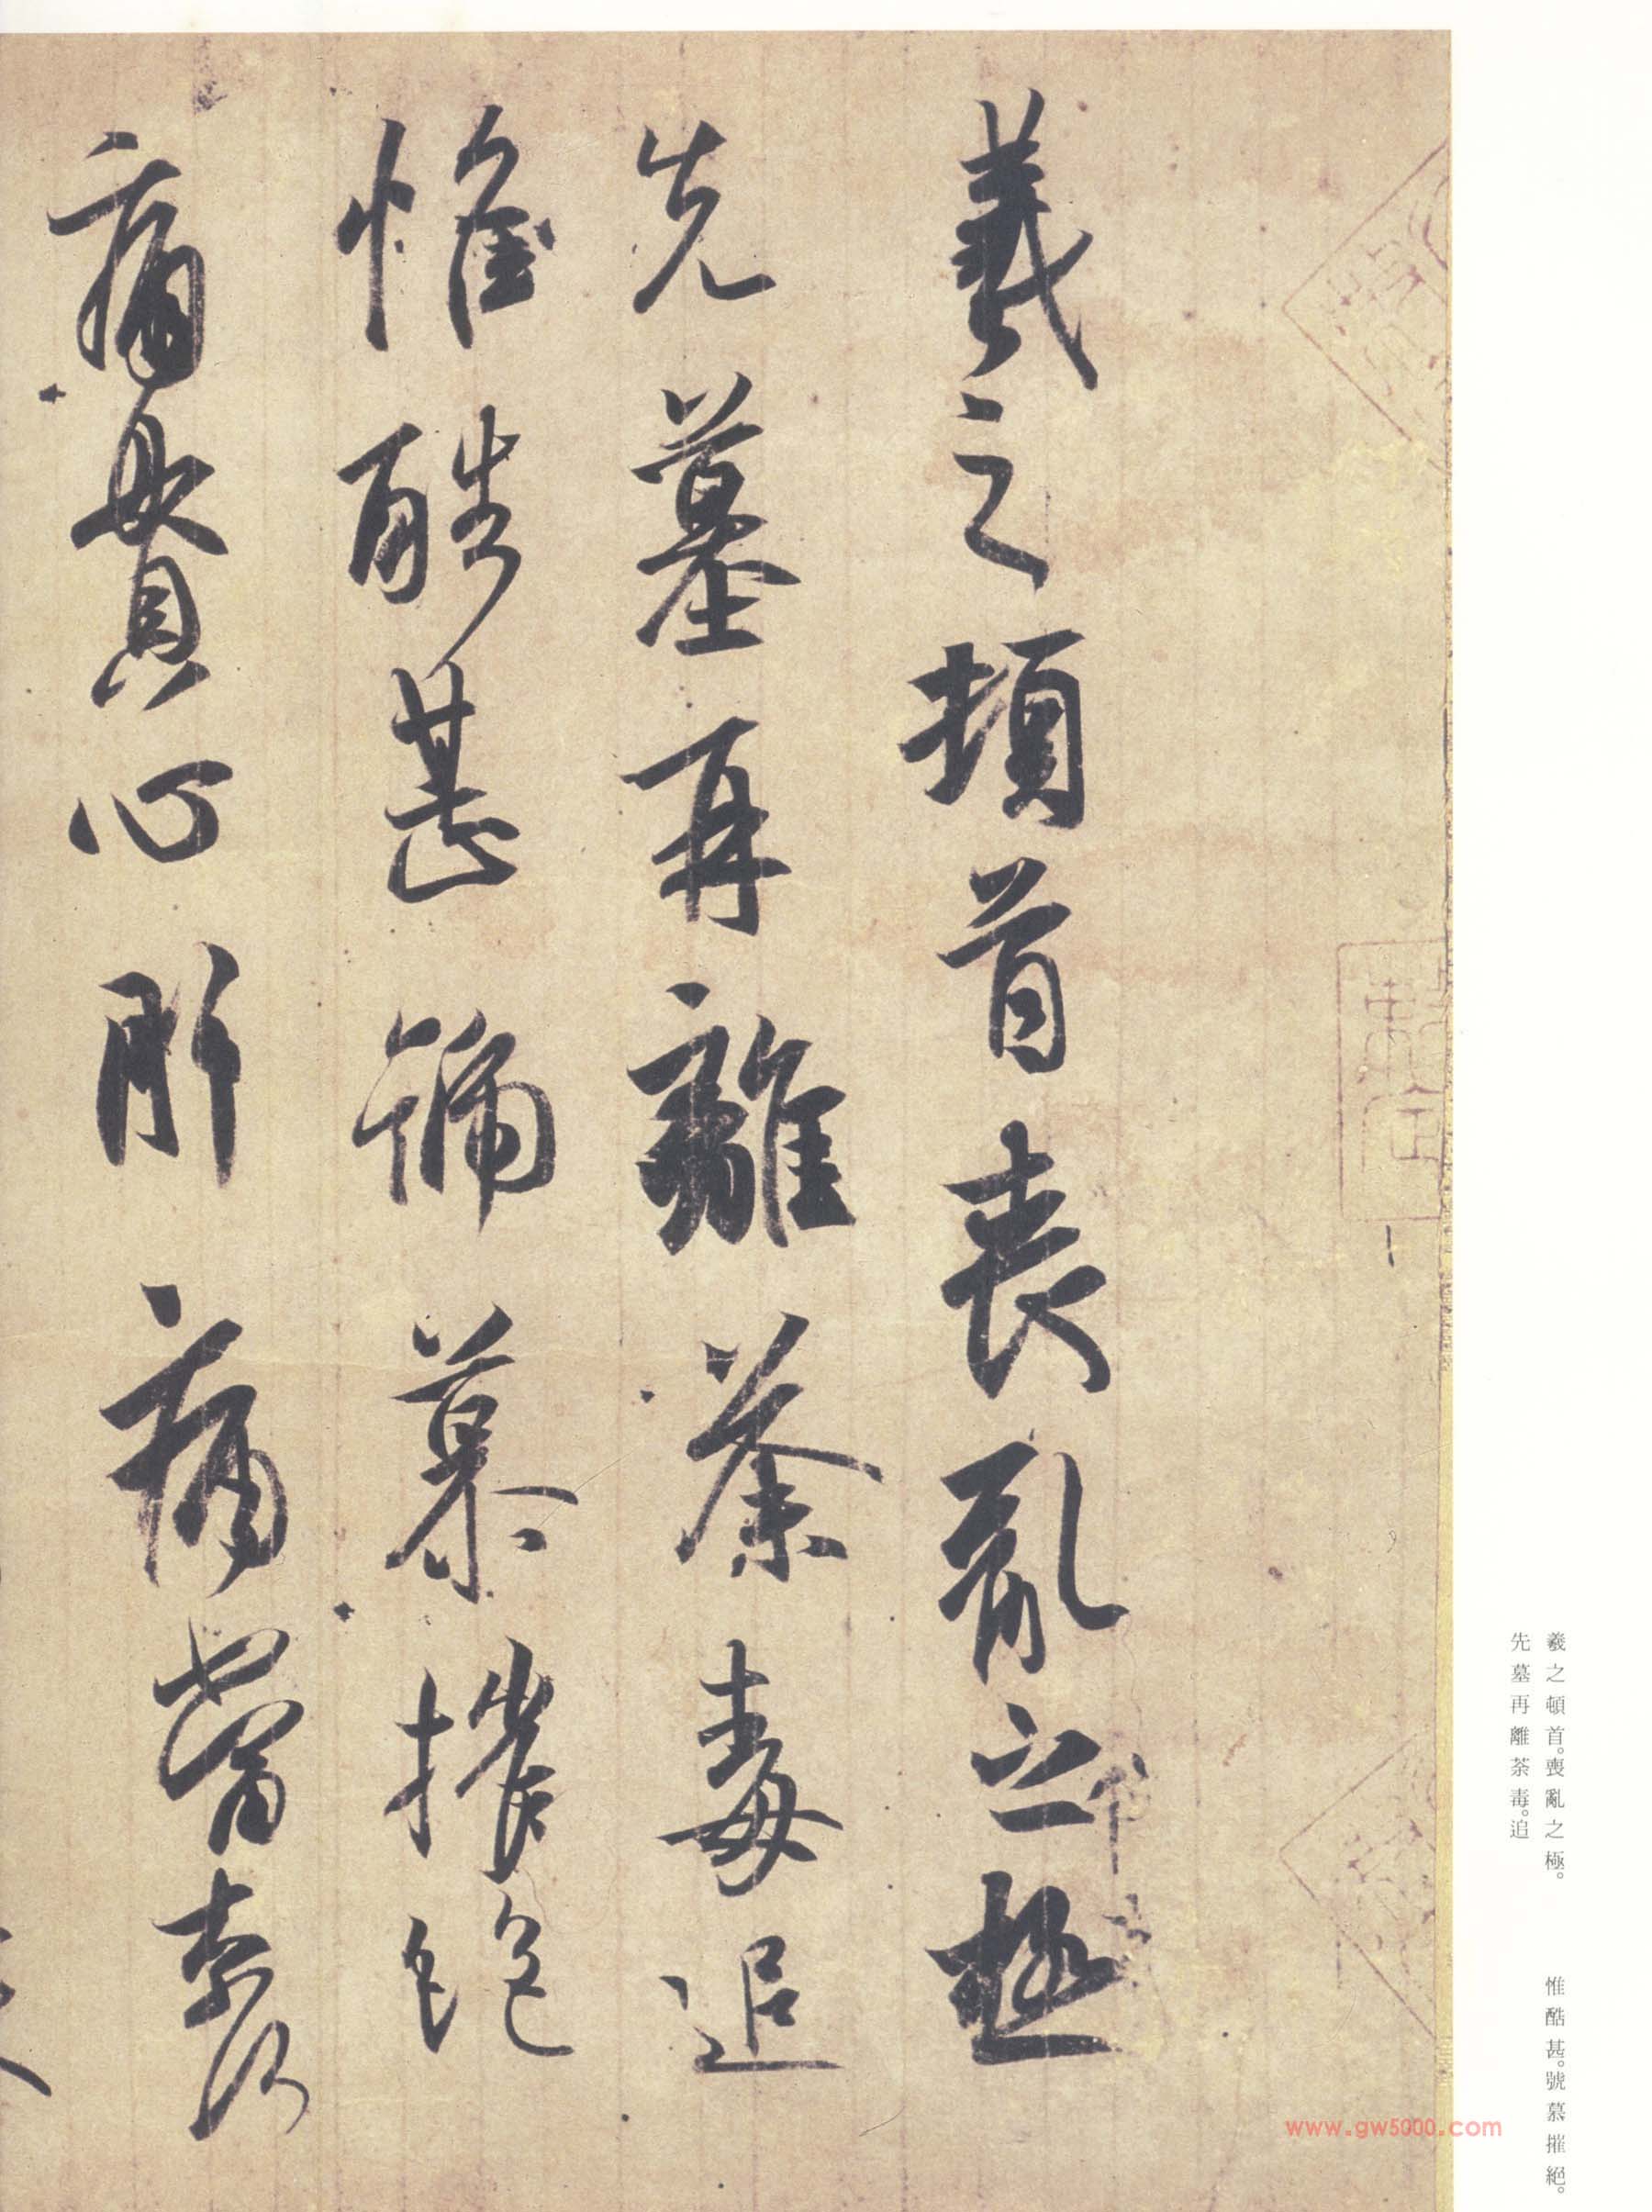 羲之頓首喪亂之極
先墓再離荼毒追
惟酷甚號慕摧絕
痛貫心肝痛當奈何
羲之頓首。喪亂之極。
先墓再離荼毒。追
惟酷甚。號慕摧絕。
www.gw5000.com